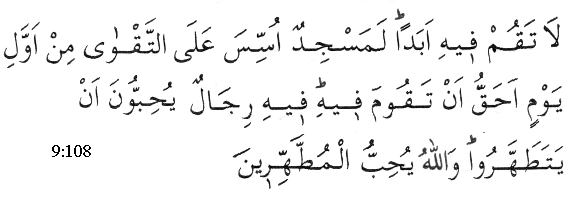 لَا تَقُمْ فٖيهِ اَبَدًاؕ لَمَسْجِدٌ اُسِّسَ عَلَى التَّقْوٰى مِنْ اَوَّلِ
يَوْمٍ اَحَقُّ اَنْ تَقُومَ فٖيهِؕ فٖيهِ رِجَالٌ يُحِبُّونَ اَنْ
يَتَطَهَّرُواؕ وَاللّٰهُ يُحِبُّ الْمُطَّهِّرٖينَ
9:108